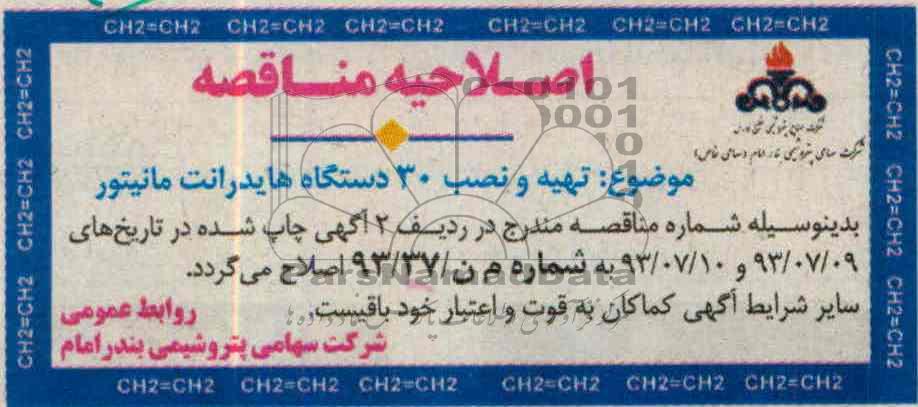 CH2=CH2 CH2=CH2 CH2=CH2 CH2=CH2 CH2=CH2 CH2=CH2
اصلاحیه مناقصه
موضوع: تهیه و نصب ۳۰ دستگاه هایدرانت مانیتور
بدینوسیله شماره مناقصه مندرج در ردیف ۲ آگهی چاپ شده در تاریخ‌های
۹۳/۰۷/۰۹ و ۹۳/۰۷/۱۰ به شماره م ن/۹۳/۳۷ اصلاح می گردد.
سایر شرایط آگهی کماکان به قوت و اعتبار خود باقیست.
روابط عمومی
شرکت سهامی پتروشیمی بندر امام
CH2=CH2 CH2=CH2 CH2=CH2
CH2=CH2 CH2=CH2 CH2=CH2
CH2=CH2 CH2=CH2 CH2=CH2 CH2=CH2 CH2=CH2 CH2=CH2
ParsNamadData